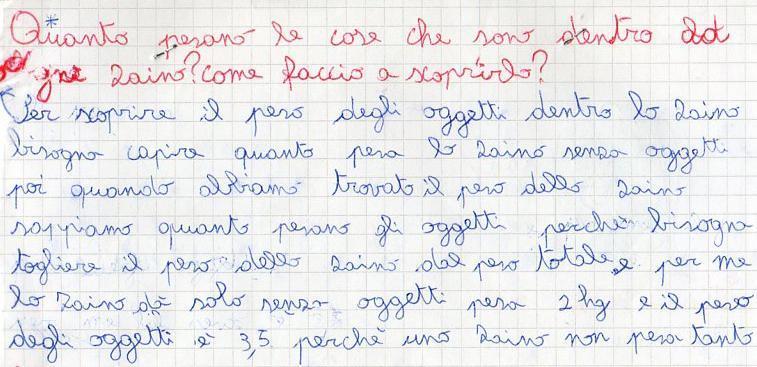 Quanto pesano le cose che sono dentro ad
ogni zaino? come faccio a scoprirlo?
Per scoprire il peso degli oggetti dentro lo zaino
bisogna capire quanto pesa lo zaino senza oggetti
poi quando abbiamo trovato il peso dello zaino
sappiamo quanto pesano gli oggetti perchè bisogna
togliere il peso dello zaino dal peso totale e per me
lo zaino da solo senza oggetti pesa 2 hg e il peso
degli oggetti è 3,5 perchè uno zaino non pesa tanto